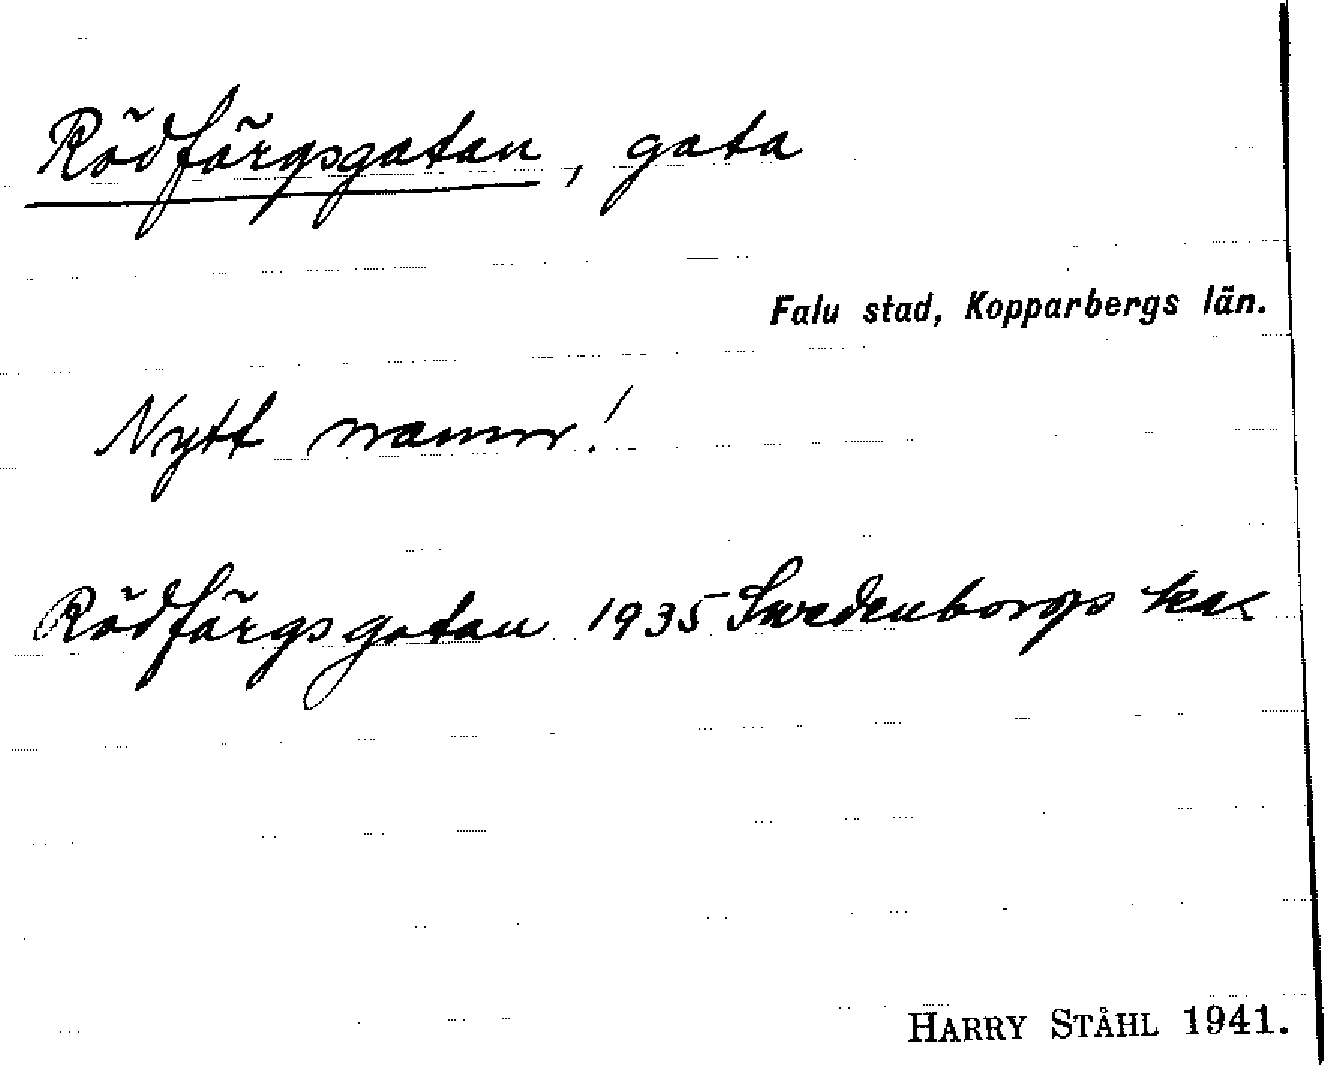 Rödfärgsgatan, gata
Falu stad, Kopparbergs län.
Nytt namn!
Rödfärgsgatan 1935 Swedenborgs ka
HARRY STÅHL 1941.